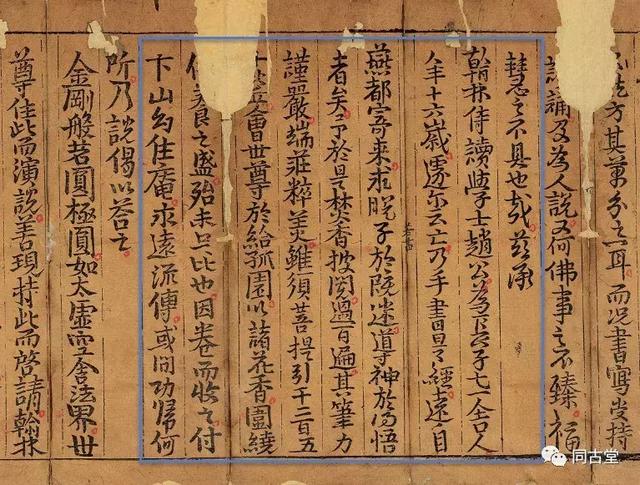 方其萬分之一耳而况書寫受持
誦及為人説又何佛事之不臻福
慧之不具也哉兹承
翰林侍讀學士趙公為長子七一舍人
年十六歲遽尔云亡乃手書是經遠自
燕都寄來求脫子於既迷導神於得悟
者矣予於是焚香披閱過百遍其筆力
謹嚴端莊粹美雖須菩提引千二百五
會世尊於給孤園以諸花香圍繞
養之盛殆未足比也因卷而收之付
下山幻住庵永遠流傳或問功歸何
所乃説偈以荅之
金剛般若圓極圓如太虛空含法界世
尊住此而演說善現持此而啓請翰林
同古堂